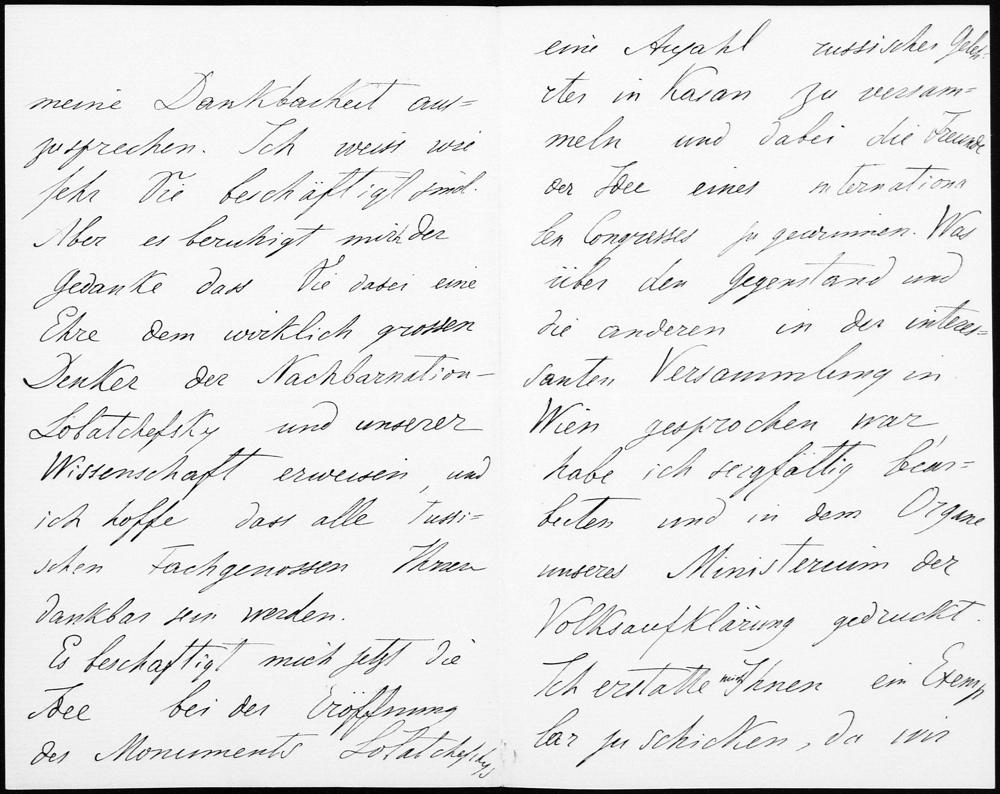 meine Dankbarkeit aus=
zusprechen. Ich weiss wie
sehr Sie beschäftigt sind.
Aber es beruhigt mich der
Gedanke dass Sie dabei eine
Ehre dem wirklich grossen
Denker der Nachbarnation—
Lobatchefsky und unserer
Wissenschaft erweisen, und
ich hoffe dass alle russi=
schen Fachgenossen Ihnen
dankbar sein werden.
Es beschaftigt mich jetzt die
Idee bei der Eröffnung
des Monuments Lobatchefskys
eine Anzahl russischer Geleh=
rter in Kasan zu versam=
meln und dabei die Freunde
der Idee eines internationa
len Congresses zu gewinnen. Was
über den Gegenstand und
die anderen in der interes=
santen Versammlung in
Wien gesprochen war
habe ich sorgfältig bear=
beiten und in dem Organe
unseres Ministerium der
Volksaufklärung gedruckt.
Ich erstatte mich Ihnen ein Exemp
lar zu schicken, da wir